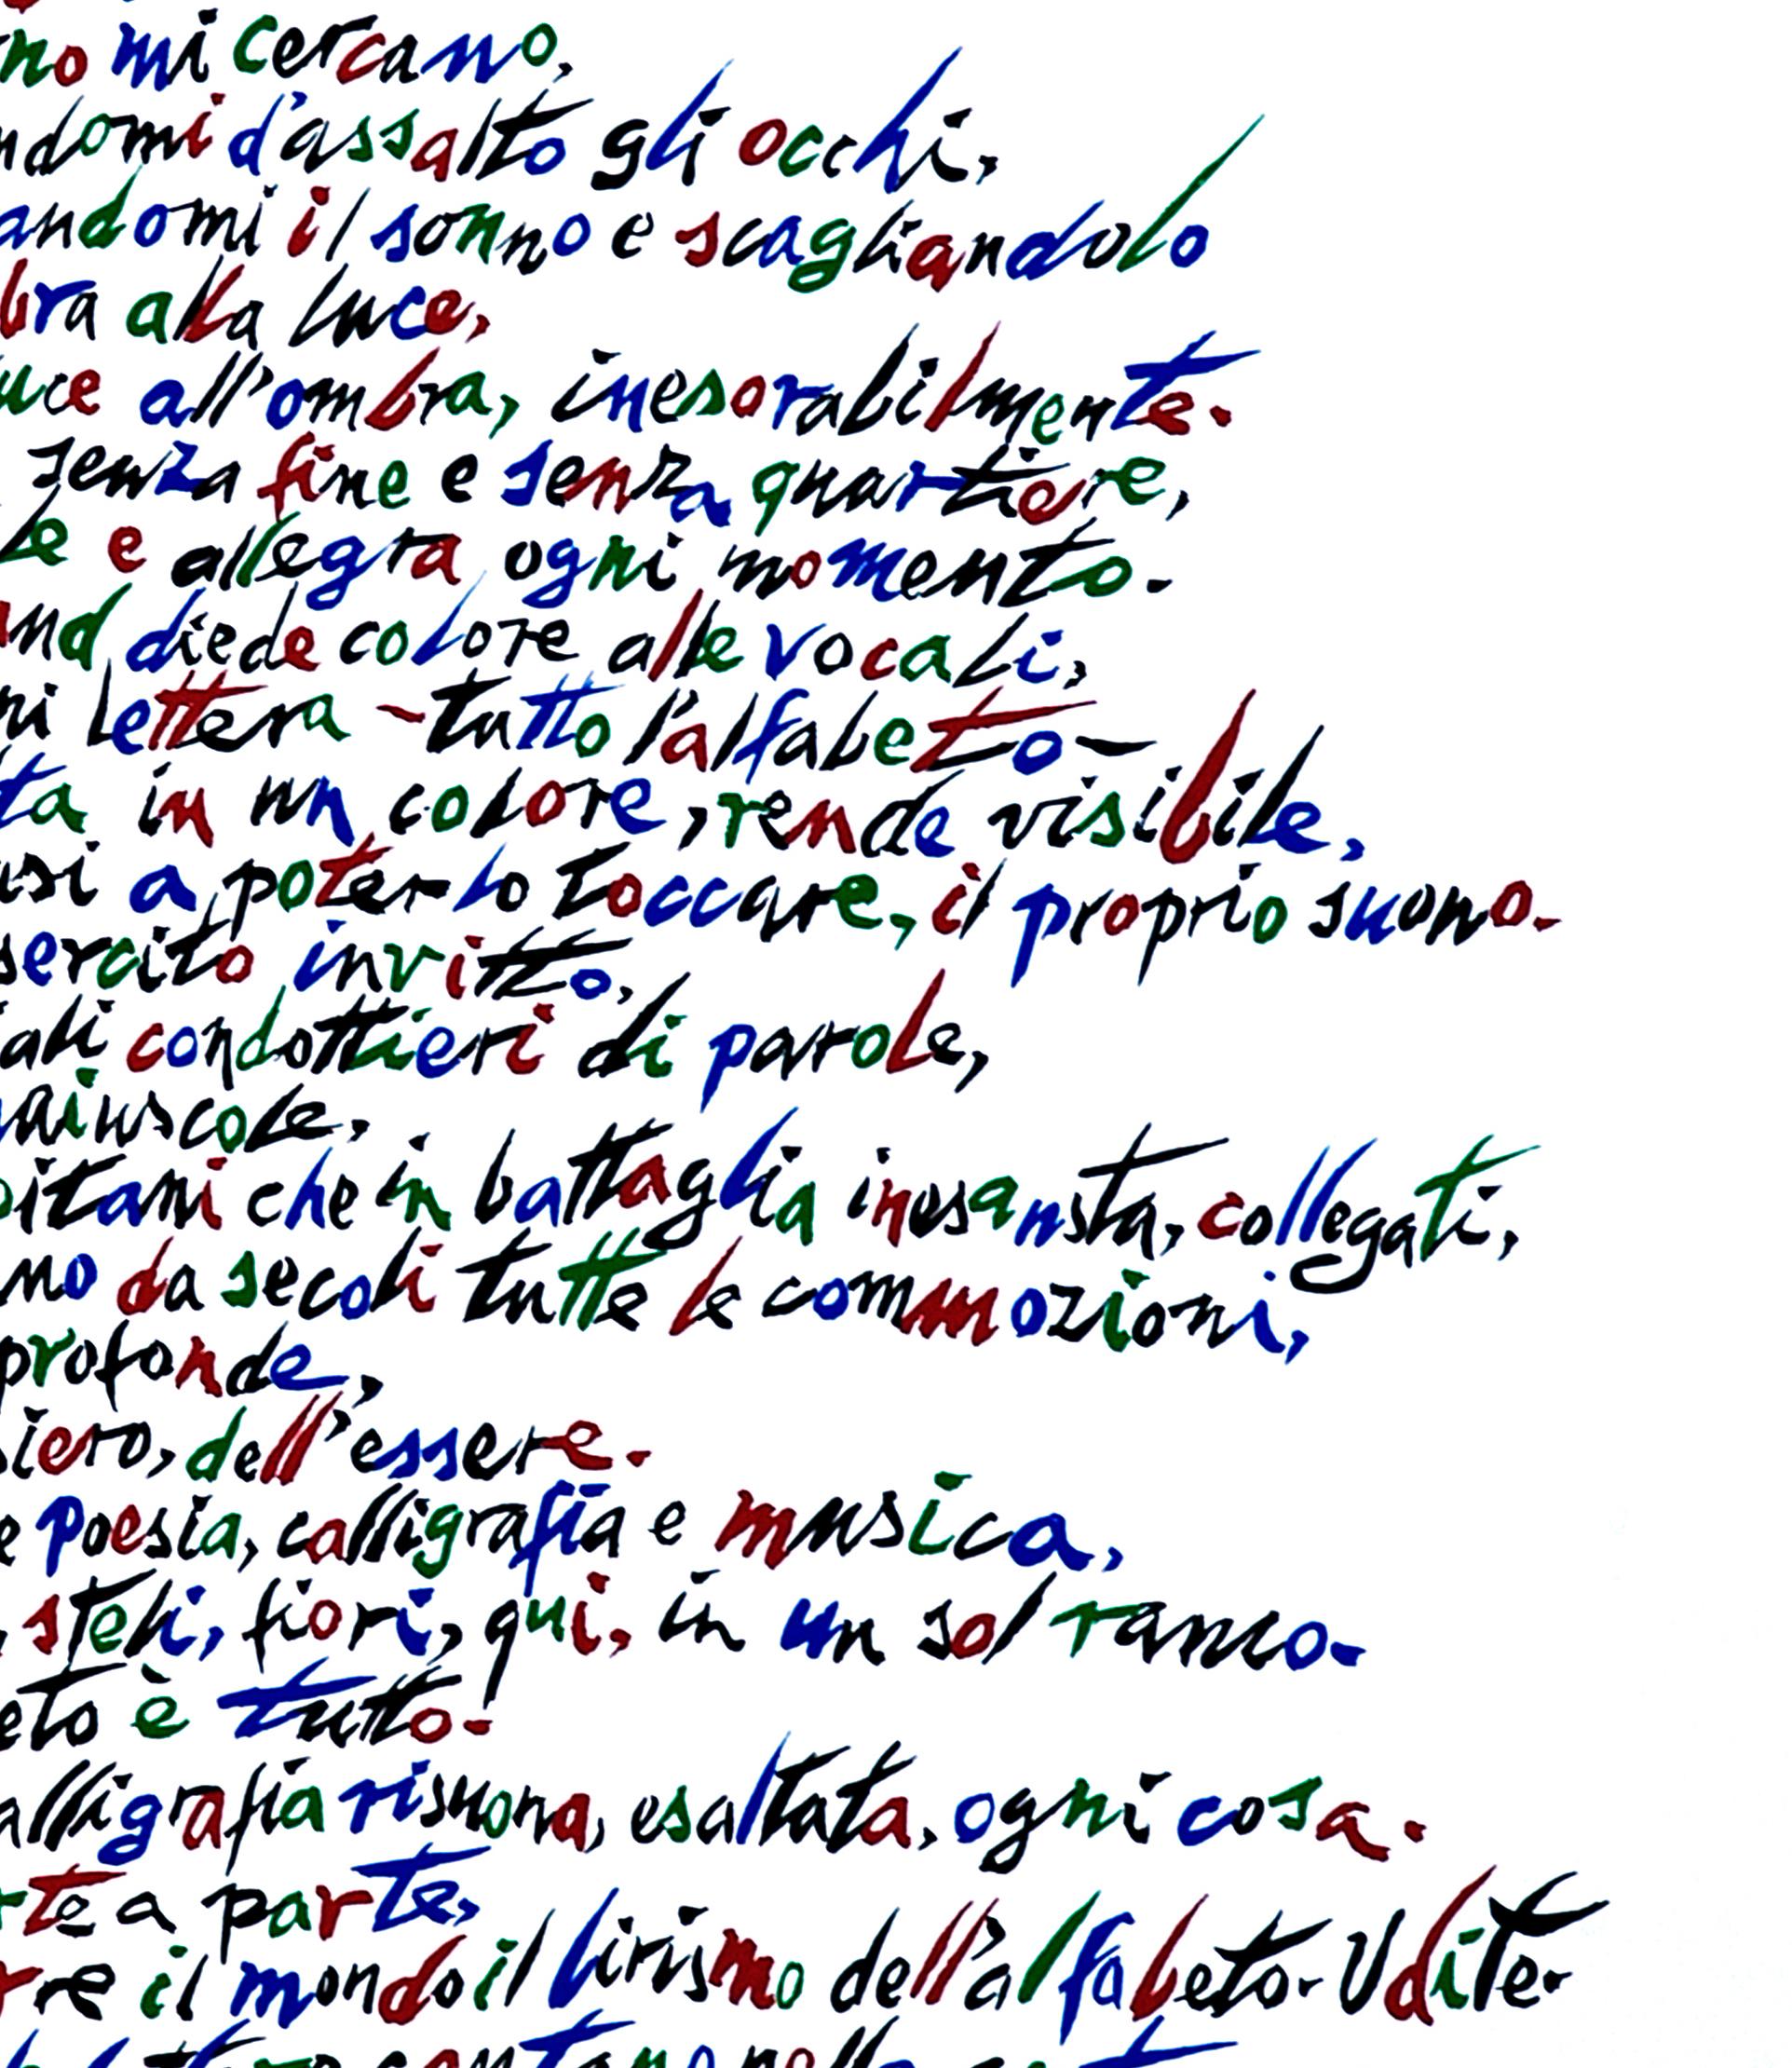 no mi cercano,
ndomi d'assalto gli occhi,
andomi il sonno e scagliandolo
bra alla luce,
uce all'ombra, inesorabilmente.
senza fine e senza quartiere,
le e allegra ogni momento.
and diede colore alle vocali,
ni lettera - tutto l'alfabeto -
ta in un colore, rende visibile,
asi a poterlo toccare, il proprio suono.
sercito invitto,
iali condottieri di parole,
maiuscole,
pitani che in battaglia inesausta, collegati,
no da secoli tutte le commozioni,
profonde,
siero, dell'essere.
e poesia, calligrafia e musica,
steli, fiori, qui, in un sol ramo.
eto è tutto.
alligrafia risuona, esaltata, ogni cosa.
rte a parte,
rre il mondo il lirismo dell'alfabeto. Udite.